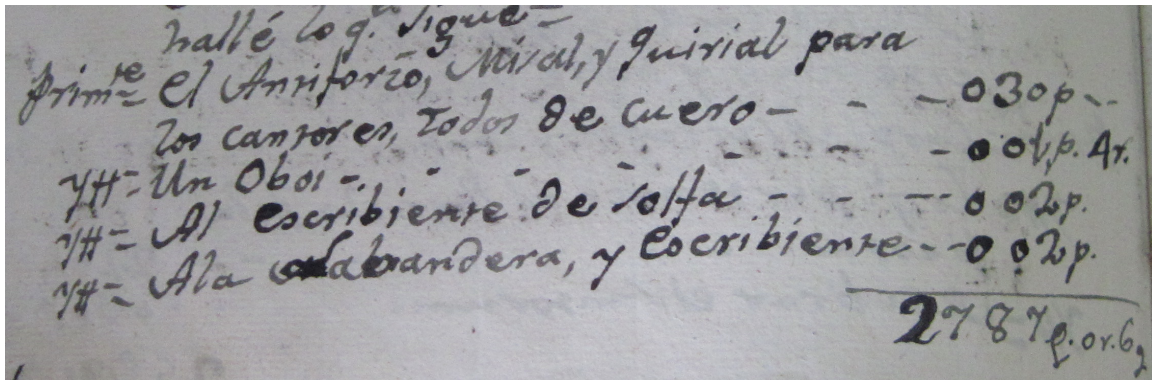 hallé lo q.e sigue=
Prim.te El Antiforio, Misal, y Quirial para
los cantores, todos de cuero - - - 030p..
Yt= Un Oboi - . - - - - - - 001p. 4r.
Yt= Al escribiente de solfa - - - - 002p.
Yt= Ala labandera, y Escribiente - - 002p.
2787p. 0r. 6g